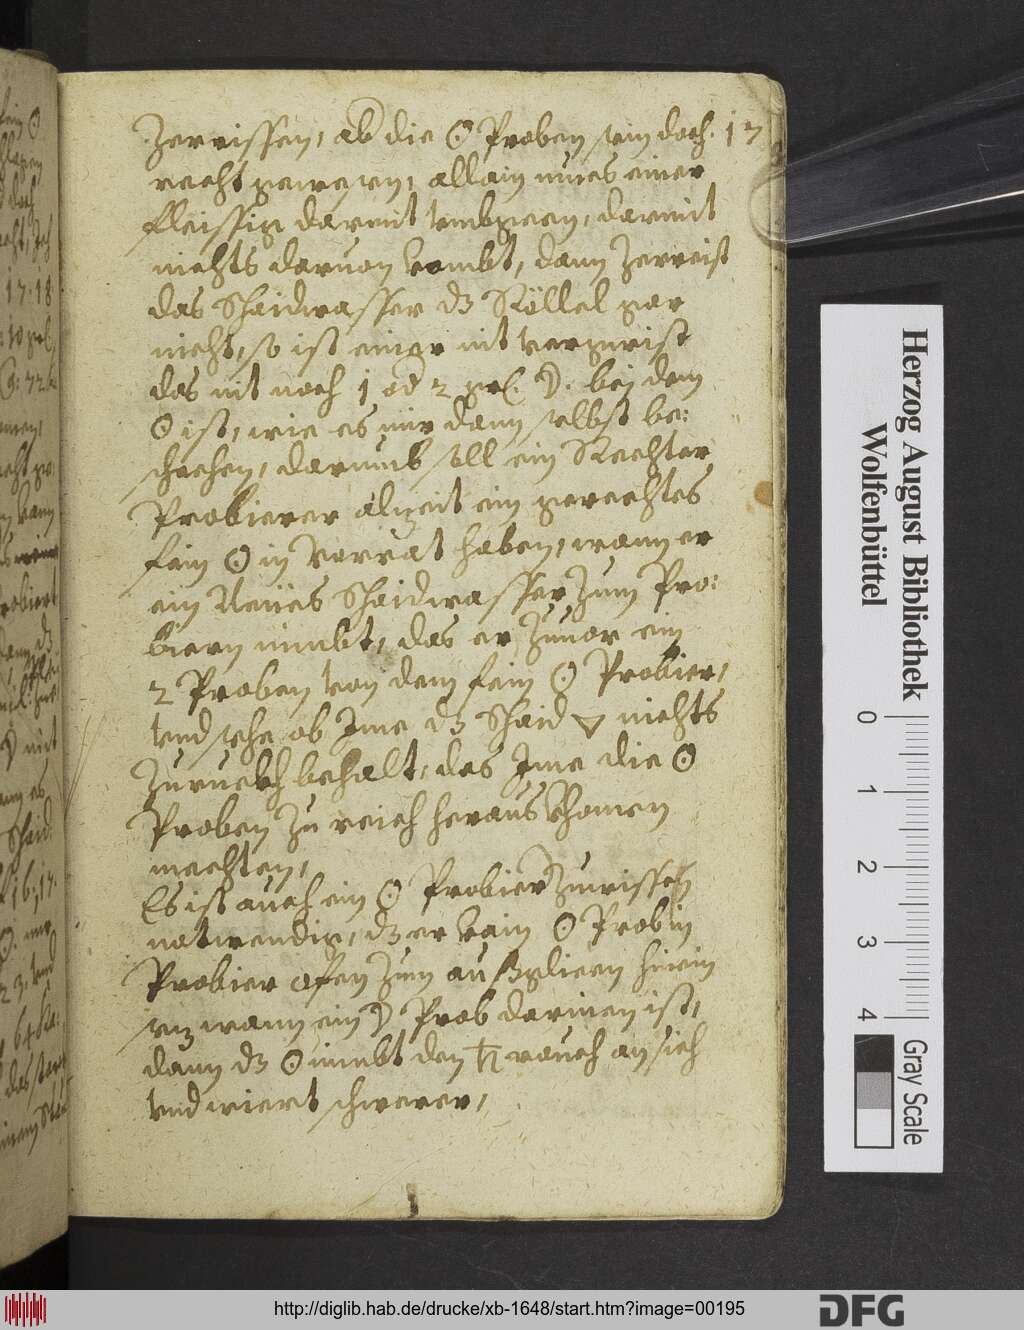 Zerrissen, ob die ☉ Proben sein doch. 17
recht gewesen, allain mues einer
fleissig darmit vmbgeen, darmit
nichts daruon kombt, dann Zerreist
das Shaidwasser dz Röllel gar
nicht, so ist einer nit vergwist
das nit noch 1 od 2 grl. ☽. bej dem
☉ ist, wie es mir dann selbst be:
schechen, darumb soll ein Rechter
Probierer alzeit ein gerechtes
fein ☉ in Vorrat haben, wann er
ein Neues Shaidwasser Zum Pro:
biern nimbt, das er Zuuor ein
2 Proben von dem fein ☉ Probier,
vnd sehe ob Ime dz Shaid ▽ nichts
Zuruckh behalt, das Ime die ☉
Proben Zu reich heraus khomen
mechten,
Es ist auch ein ☉ Probier Zuwissen
notwendig, dz er kain ☉ Prob in
Probier ofen Zum außglieen hinein
sez wann ein ☽ Prob darinen ist,
dann dz ☉ nimbt den ♄ rauch an sich
vnd wiert schwerer,
Herzog August Bibliothek
Wolfenbüttel
0 1 2 3 4
Gray Scale
http://diglib.hab.de/drucke/xb-1648/start.htm?image=00195
DFG